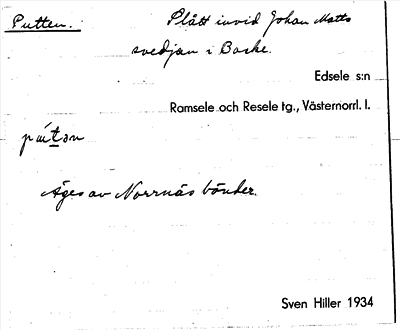 Putten. Plått invid Johan Matts
svedjan i Backe.
Edsele s:n
Ramsele och Resele tg., Västernorrl. l.
Äges av Norrnäs bönder.
Sven Hiller 1934